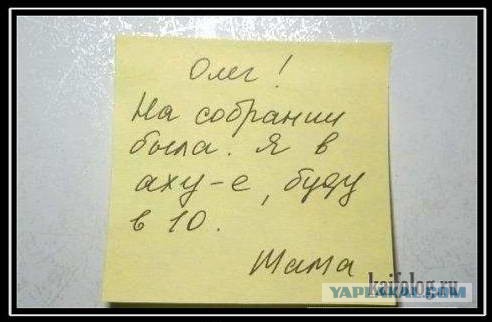 Олег!
На собрании
была. Я в
аху-е, буду
в 10.
Мама
kaifolog.ru
YAPLAKAL.COM